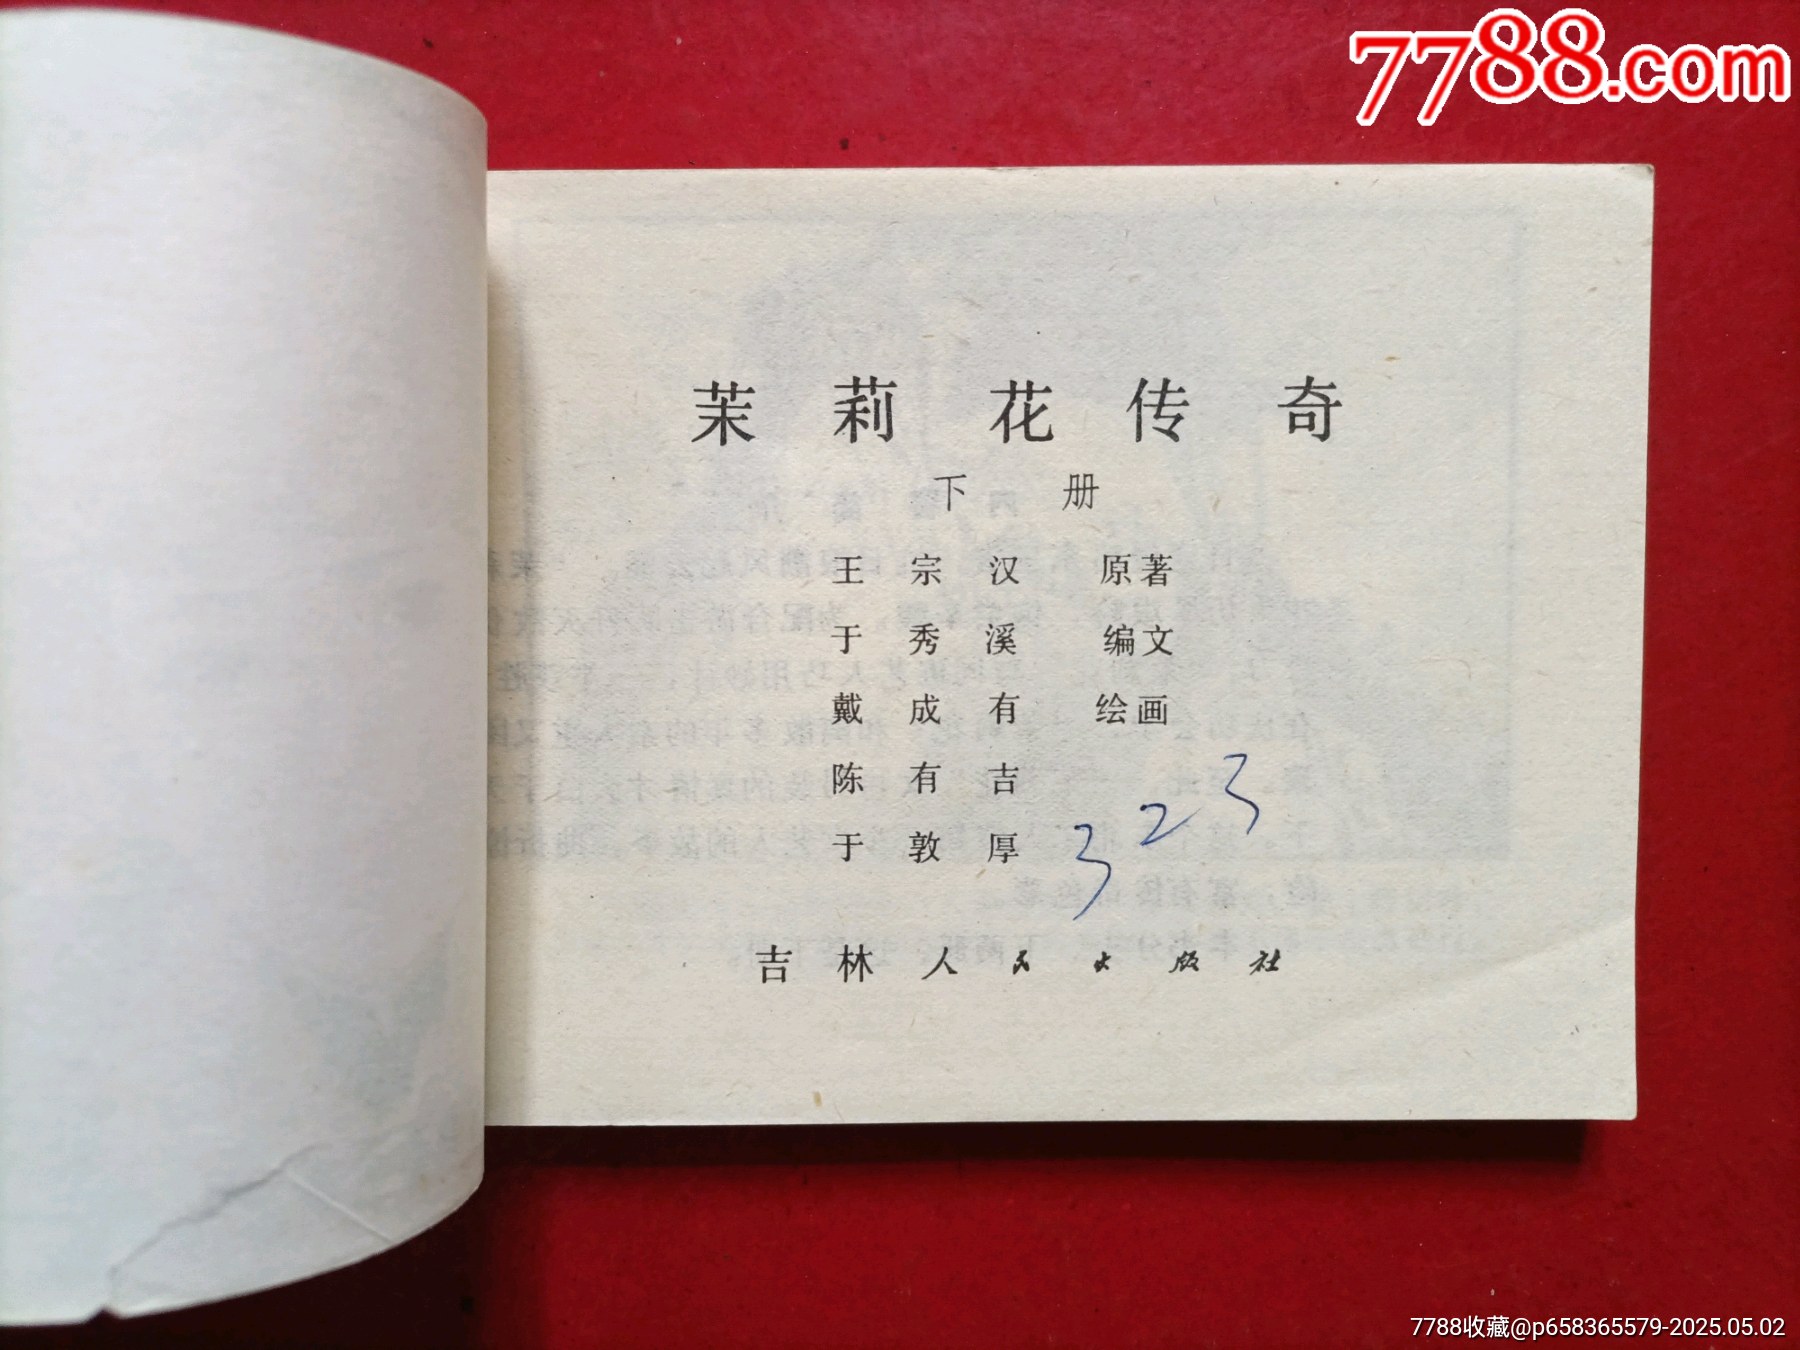 7788.com
茉莉花传奇
下册
王宗汉 原著
于秀溪 编文
戴成有 绘画
陈有吉
于敦厚
323
吉林人民出版社
7788收藏@p658365579-2025.05.02